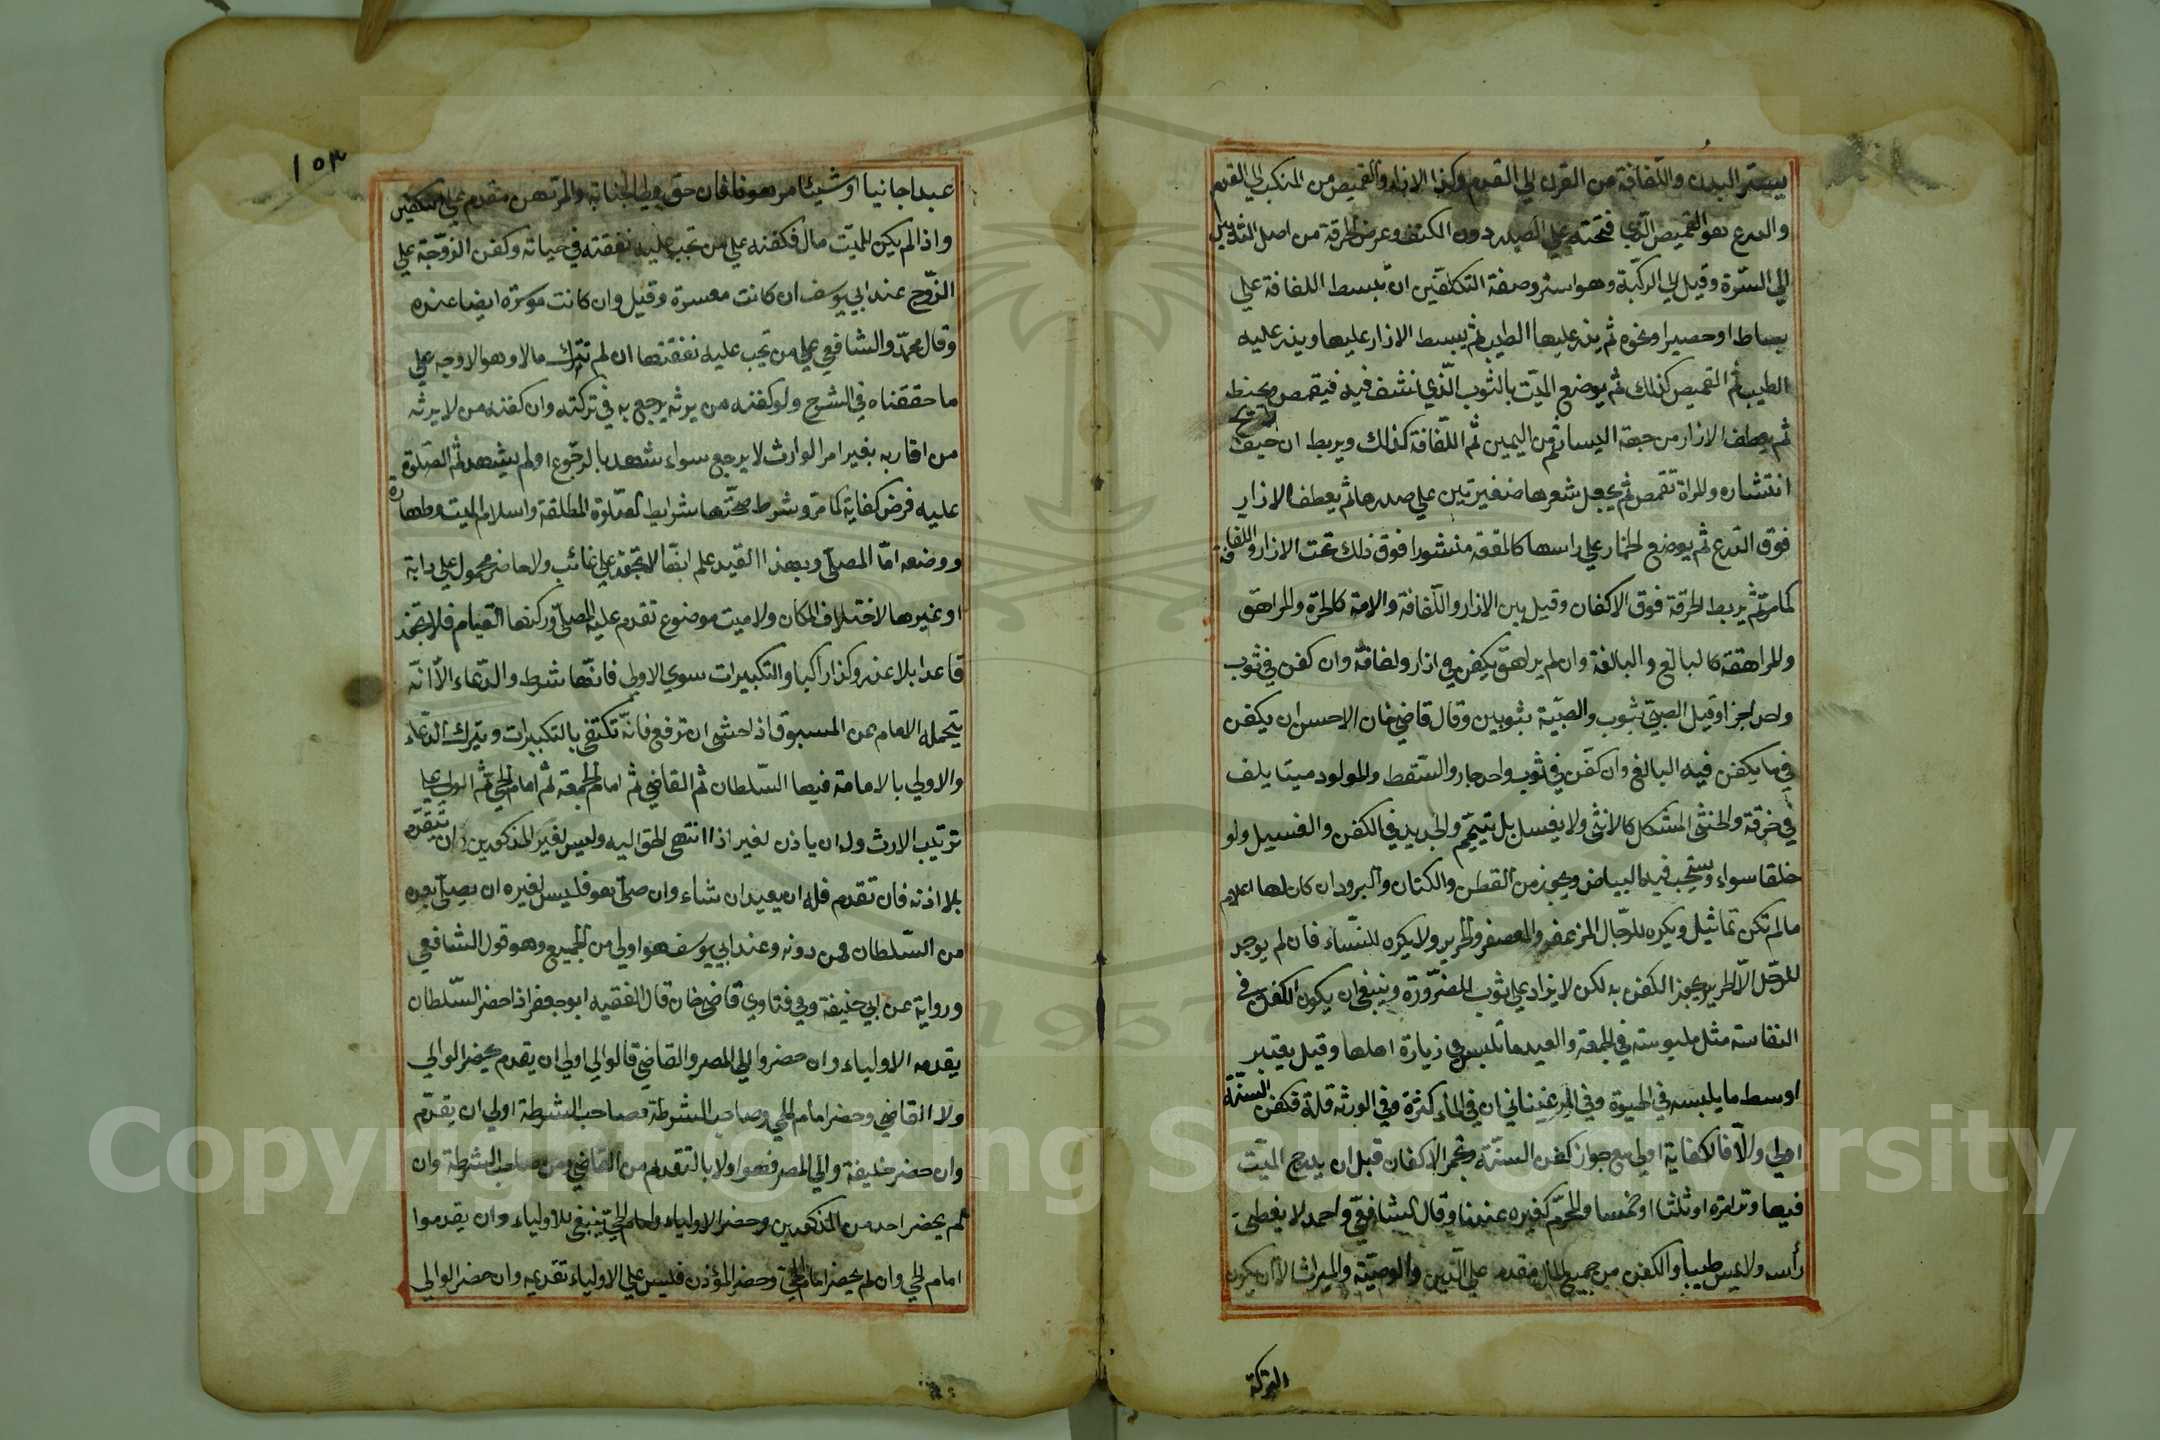 يستر البدن واللفافة من القرن الى القدم وكذا الازار والقميص من المنكب الى القدم
والدرع هو القميص الذي فتحته على الصدر دون الكتف وعرض الخرقة من اصل الثديين
الى السّرة وقيل الى الركبة وهو استر وصفة التكفين ان يبسط اللفافة على
بساط او حصير او نحوه ثم يذر عليها الطيب ثم يبسط الازار عليها ويذر عليه
الطيب ثم القميص كذلك ثم يوضع الميّت بالثوب الّذي نشف فيه فيقمص ويحنط
ثم يعطف الازار من جهة اليسار ثم من اليمين ثم اللّفافة كذلك ويربط ان خيف
انتشاره والمراة تقمص ثم يجعل شعرها ضفيرتين على صدرها ثم يعطف الازار
فوق الدّرع ثم يوضع الخمار على راسها كالمقنعة منشورا فوق ذلك تحت الازار واللفافة
كما مرّ ثم يربط الخرقة فوق الاكفان وقيل بين الازار واللّفافة والامة كالحرّة والمراهق
والمراهقة كالبالغ والبالغة وان لم يراهق يكفن في ازار ولفافة وان كفن في ثوب
واحد اجزا وقيل الصبيّ بثوب والصبيّة بثوبين وقال قاضي خان الاحسن ان يكفن
فيما يكفن فيه البالغ وان كفّن في ثوب واحد جاز والسّقط والمولود ميتا يلف
في خرقة والخنثى المشكل كالانثى ولا يغسل بل يتيمّم والجديد في الكفن والغسيل ولو
خلقا سواء ويستحب فيه البياض ويجوز من القطن والكتان والبرود ان كان لها اعلام
ما لم تكن تماثيل ويكره للرّجال المزعفر والمعصفر والحرير ولا يكره للنّساء فان لم يوجد
للرّجل الّا الحرير يجوز الكفن به لكن لا يزاد على ثوب للضرّورة وينبغي ان يكون الكفن في
النفاسة مثل ملبوسته في الجمعة والعيد ما تلبس في زيارة اهلها وقيل يعتبر
اوسط ما يلبسه في الحيوة وفي المرغيناني ان في المال كثرة وفي الورثه قلة فكفن السنّة
اولى والّا فالكفاية اولى مع جواز كفن السنّة وتجمر الاكفان قبل ان يدرج الميّت
فيها وترا مرّة او ثلثا او خمسا والمحرّم كغيره عندنا وقال الشافعيّ واحمد لا يغطى
رأسه ولا يمس طيبا والكفن من جميع المال مقدم على الدّين والوصيّة والميراث الّا ان يكون
التركة
١٥٣
عبدا جانيا او شيئا مرهونا فان حق ولي الجناية والمرتهن مقدم على التكفين
واذا لم يكن للميّت مال فكفنه على من تجب عليه نفقته في حياته وكفن الزوّجة على
الزّوج عند ابي يوسف ان كانت معسرة وقيل وان كانت موسرة ايضا عنده
وقال محمّد والشافعي على من تجب عليه نفقتها ان لم تترك مالا وهو الاوجه على
ما حققناه في الشرح ولو كفنه من يرثه يرجع به في تركته وان كفنه من لا يرثه
من اقاربه بغير امر الوارث لا يرجع سواء شهد بالرجّوع او لم يشهد ثم الصّلوة
عليه فرض كفاية كما مرّ وشرط صحّتها شرايط الصّلوة المطلقة واسلام الميت وطهارة
ووضعه امّا المصلّي وبهذا القيد علم انّها لا تجوز على غائب ولا حاضر محمول على دابة
او غيرها لاختلاف المكان ولا ميت موضوع تقدم عليه المصلّي وركنها القيام فلا تجوز
قاعدا بلا عذر وكذا راكبا والتكبيرات سوى الاولى فانّها شرط والدّعاء الّا انّه
يتحمله الامام عن المسبوق اذا خشي ان ترفع فانّه تكتفي بالتكبيرات ويترك الدّعاء
والاولى بالامامة فيها السّلطان ثم القاضي ثم امام الجمعة ثم امام الحيّ ثم الولي على
ترتيب الارث وله ان ياذن لغير اذا انتهى الحق اليه وليس لغير المذكورين ان يتقدّم
بلا اذنه فان تقدم فله ان يعيد ان شاء وان صلّى هو فليس لغيره ان يصلّي بعده
من السّلطان فمن دونه وعند ابي يوسف هو اولى من الجميع وهو قول الشافعي
ورواية عن ابي حنيفة وفي فتاوى قاضي خان قال الفقيه ابو جعفر اذا حضر السّلطان
يقدمه الاولياء وان حضر والي المصر والقاضي فالوالي اولى ان يقدم يحضر الوالي
ولا القاضي وحضر امام الحي وصاحب الشرطة فصاحب الشرطة اولى ان يقدّم
وان حضر خليفة والي المصر فهو اولا بالتقدم من القاضي ومن صاحب الشرطة وان
لم يحضر احد من المذكورين وحضر الاولياء وامام الحيّ ينبغي للاولياء وان يقدموا
امام الحي وان لم يحضر امام الحيّ وحضر المؤذن فليس على الاولياء تقديمه وان حضر الوالي
Copyright © King Saud University
1957